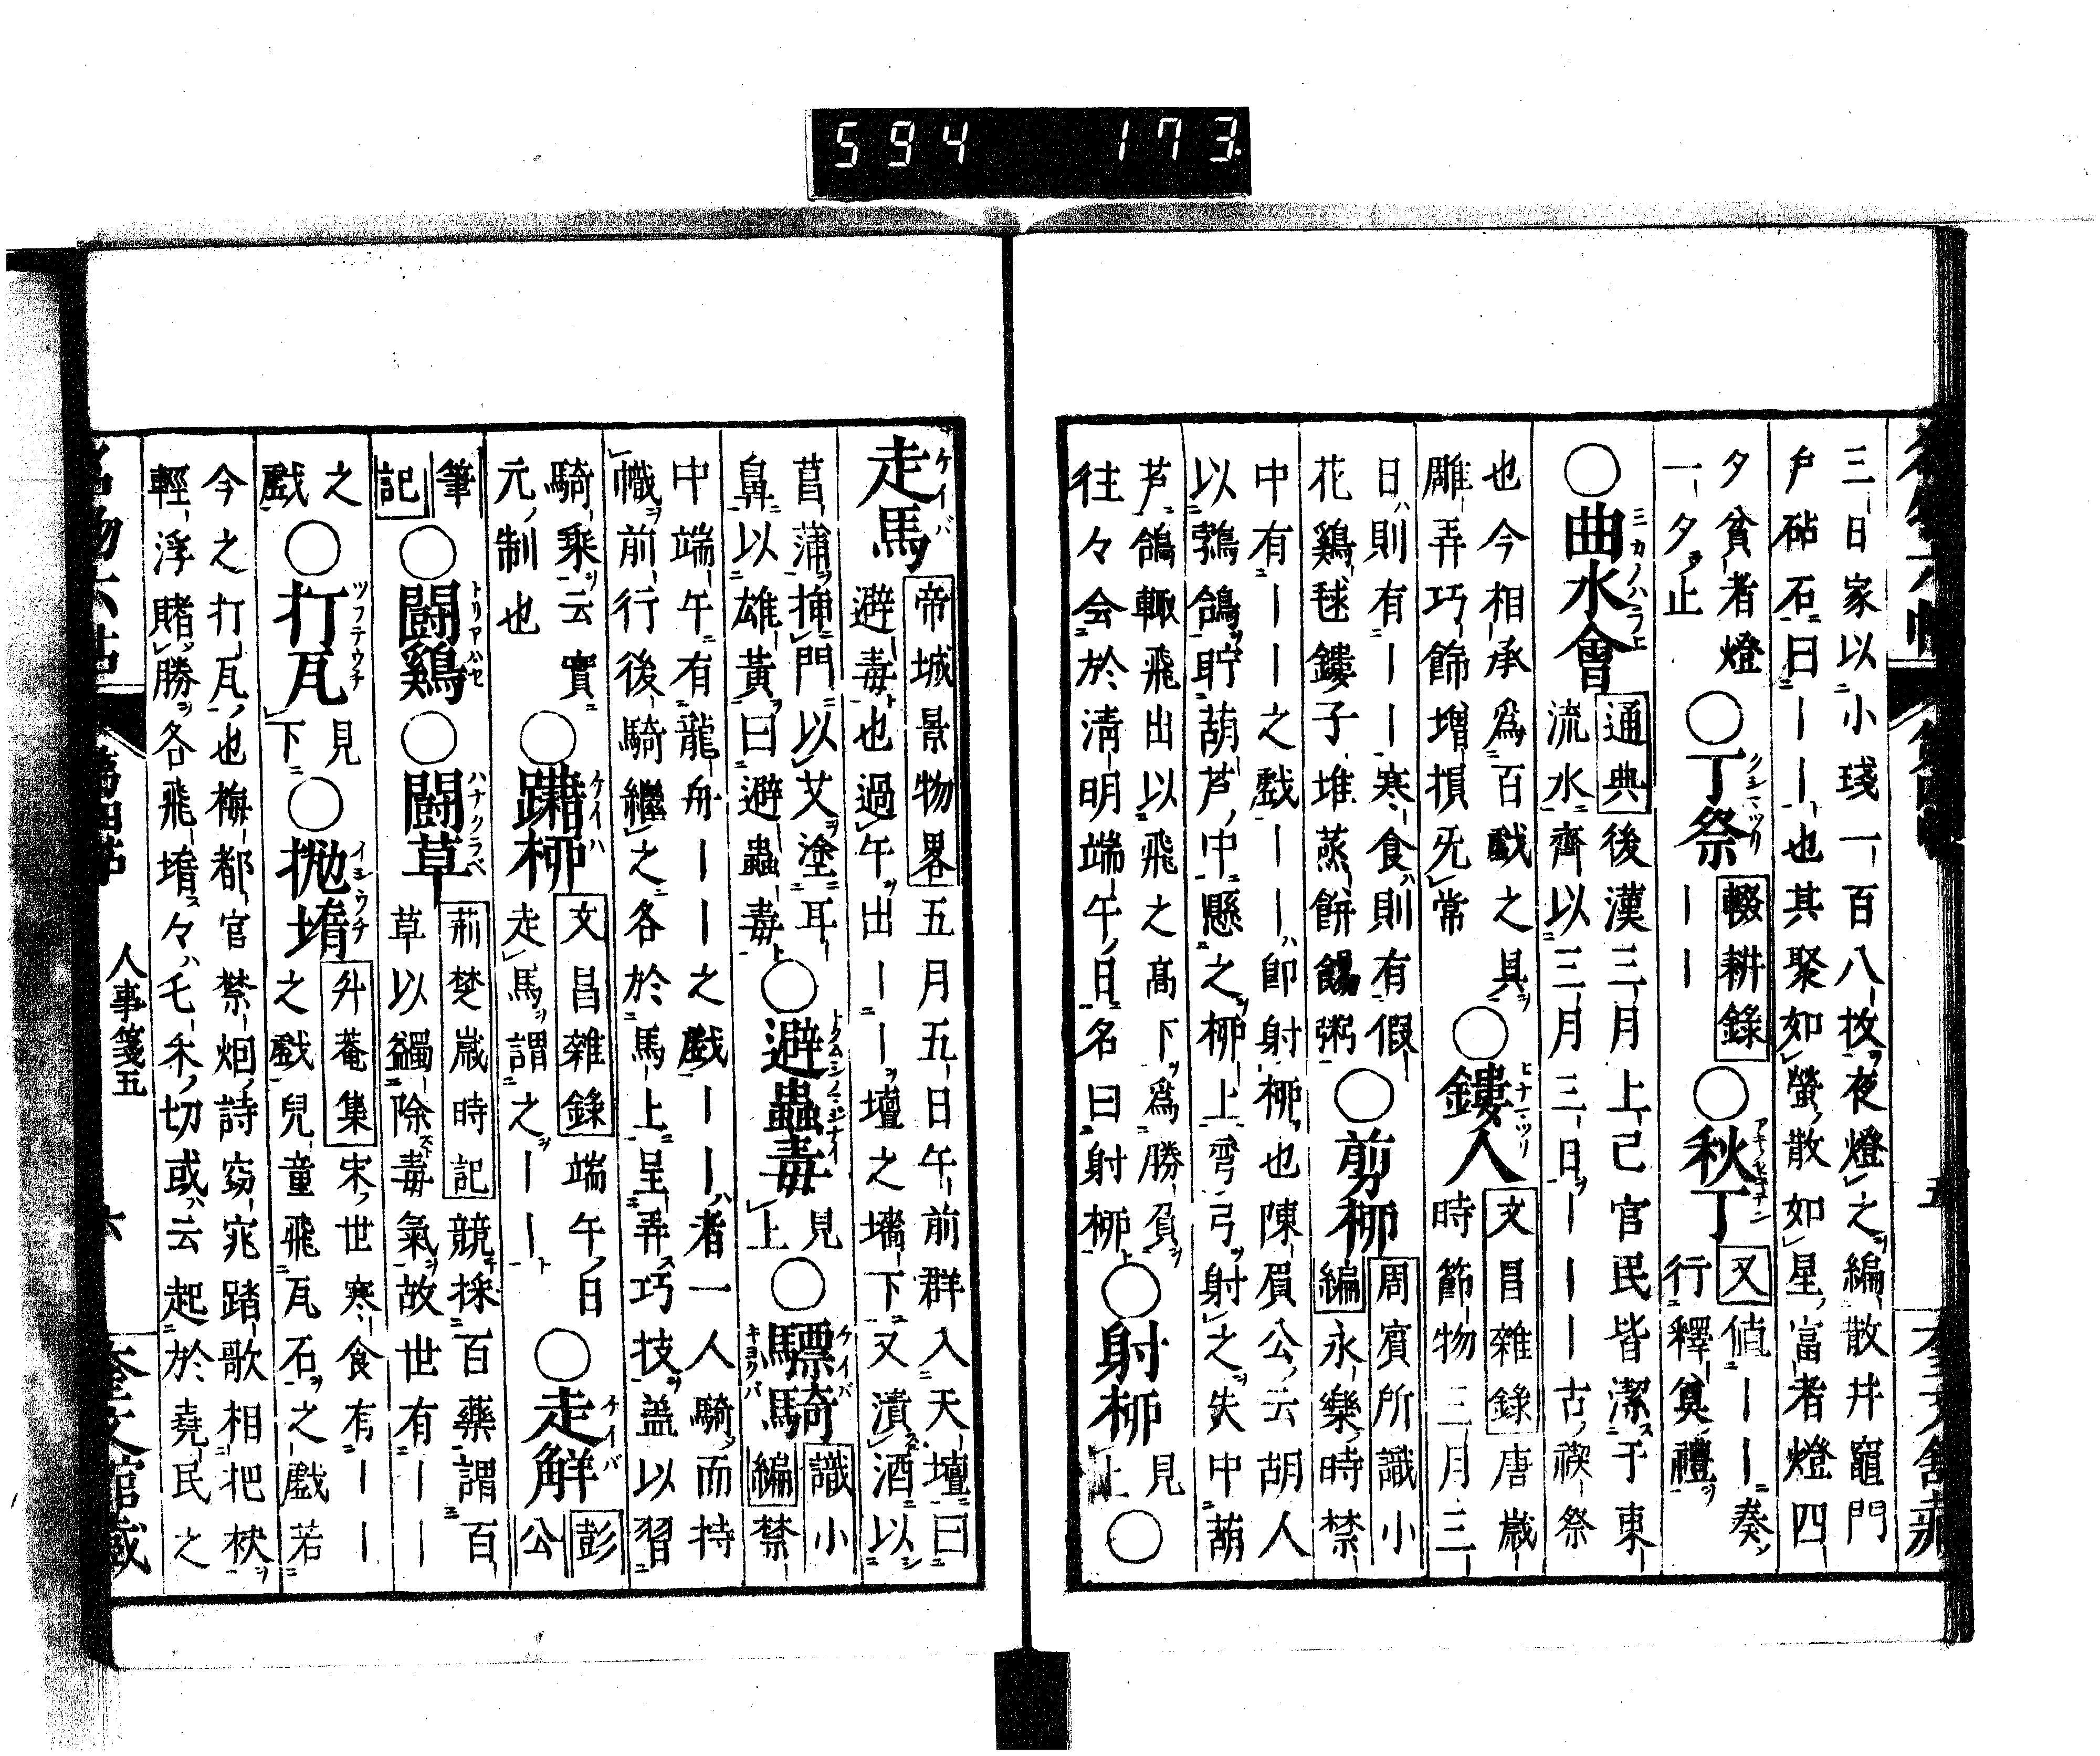 594 173
三日家以小琖一百八枚夜燈之編散井竈門
戶砧石曰｜｜也其聚如螢散如星富者燈四
夕貧者燈
一夕止
○丁祭 輟耕錄｜｜
○秋丁 又値｜｜奏
行釋奠禮
○曲水會 通典 後漢三月上己官民皆潔于東
流水齊以三月三日｜｜｜古禊祭
也今相承爲百戯之具
雕弄巧飾增損旡常
○鏤人 文昌雜錄 唐嵗
時節物三月三
日則有｜｜寒食則有假
花鷄毬鏤子堆蒸餅餳粥
○剪栁 周賓所識小
編 永樂時禁
中有｜｜之戲｜｜卽射栁也陳眉公云胡人
以鵓鴿貯葫芦中懸之栁上彎弓射之失中葫
芦鴿輙飛出以飛之髙下爲勝負
往々会於淸明端午日名曰射栁
○射栁 見上
○
走馬 帝城景物畧 五月五日午前群入天壇曰
避毒也過午出｜｜壇之墻下又漬酒以
菖蒲挿門以艾塗耳
鼻以雄黃曰避蟲毒
○避蟲毒 見上
○驃騎 識小
編 禁
中端午有龍舟｜｜之戲｜｜者一人騎而持
幟前行後騎繼之各於馬上呈弄巧技盖以習
騎乘云實
元制也
○躤栁 文昌雜錄 端午日
走馬謂之｜｜
○走解 彭公
筆記
○闘鷄
○闘草 荊楚嵗時記 競採百藥謂百
草以蠲除毒氣故世有｜｜
之戲
○打瓦 見下
○拋堶 升菴集 宋世寒食有｜｜
之戲兒童飛瓦石之戲若
今之打瓦也梅都官禁烟詩窈窕踏歌相把袂
輕浮賭勝各飛堶々七禾切或云起於堯民之
人事箋五
六